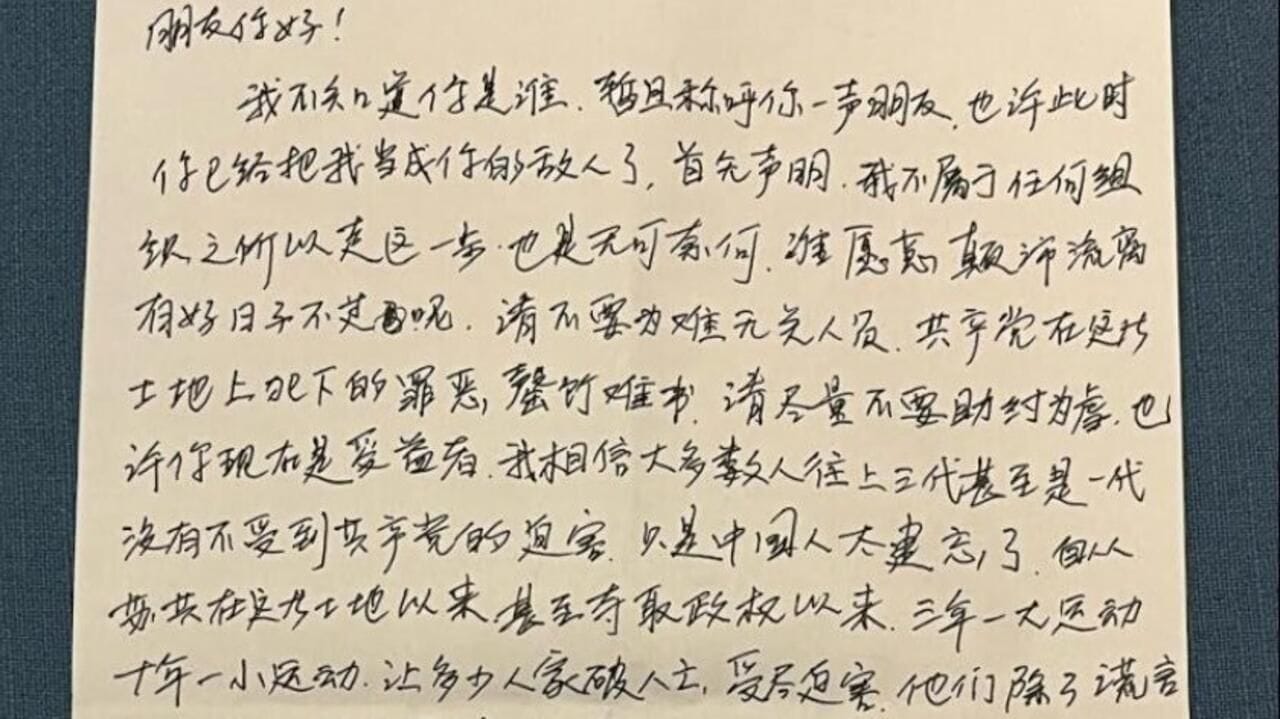 朋友你好!
我不知道你是谁.暂且称呼你一声朋友,也许此时
你已给把我当成你的敌人了,首先声明.我不属于任何组
织之所以走这一步.也是无可奈何.谁愿意颠沛流离
有好日子不过呢.请不要为难无关人员.共产党在这片
土地上犯下的罪恶,罄竹难书.请尽量不要助纣为虐.也
许你现在是受益者.我相信大多数人往上三代甚至是一代
没有不受到共产党的迫害.只是中国人太健忘了.自从
苏共在这片土地以来甚至夺取政权以来.三年一大运动
十年一小运动.让多少人家破人亡,受尽迫害.他们除了谎言